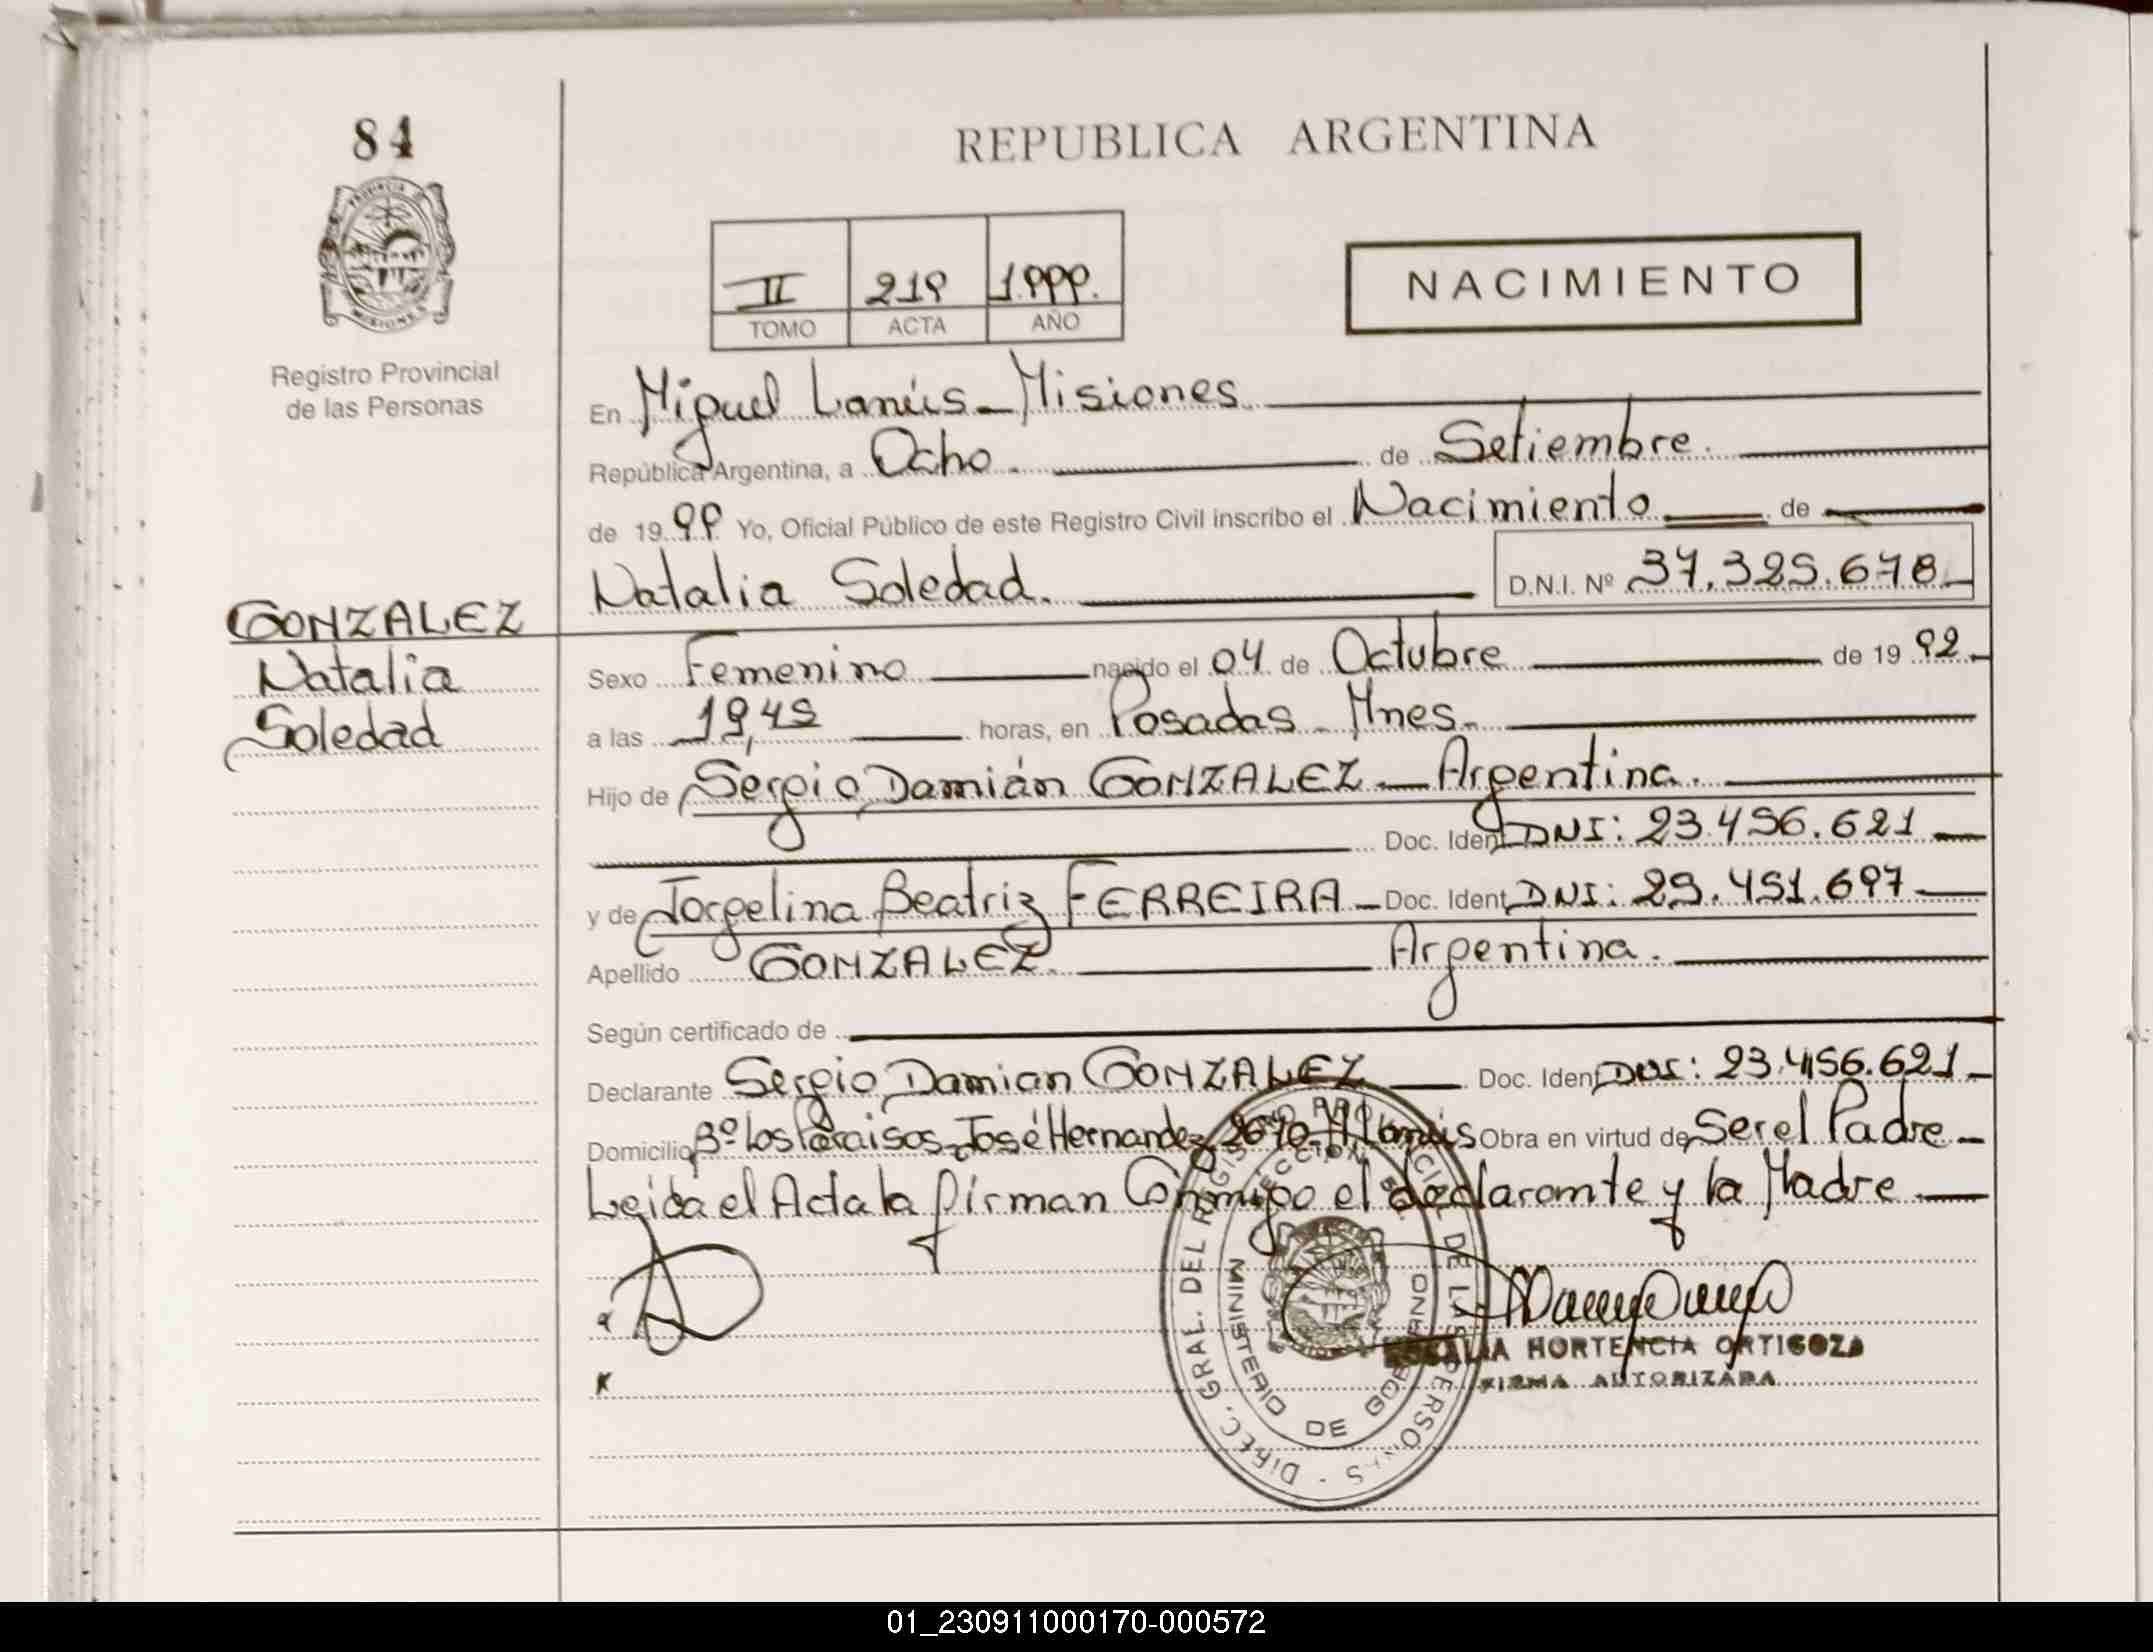 84
PROVINCIA DE
MISIONES
Registro Provincial
de las Personas
REPUBLICA ARGENTINA
II 219 1.999.
TOMO ACTA AÑO
NACIMIENTO
En Miguel Lanús - Misiones
República Argentina, a Ocho. de Setiembre.
de 1999 Yo, Oficial Público de este Registro Civil inscribo el Nacimiento de
Natalia Soledad. D.N.I. Nº 37.325.678
GONZALEZ
Natalia
Soledad
Sexo Femenino nacido el 04 de Octubre de 1992
a las 19,45 horas, en Posadas - Mnes.
Hijo de Sergio Damián GONZALEZ - Argentina.
Doc. Ident DNI: 23.456.621
y de Jorgelina Beatriz FERREIRA - Doc. Ident DNI: 25.451.697
Apellido GONZALEZ. Argentina.
Según certificado de
Declarante Sergio Damian GONZALEZ Doc. Ident DNI: 23.456.621
Domicilio Bº Los Paraisos - José Hernandez 2670 - M. Lanús Obra en virtud de Ser el Padre
Leida el Acta la firman Conmigo el declarante y la Madre
DIREC. GRAL. DEL REGISTRO PROVINCIAL DE LAS PERSONAS
MINISTERIO DE GOBIERNO
HORTENCIA ORTIGOZA
FIRMA AUTORIZADA
01_230911000170-000572